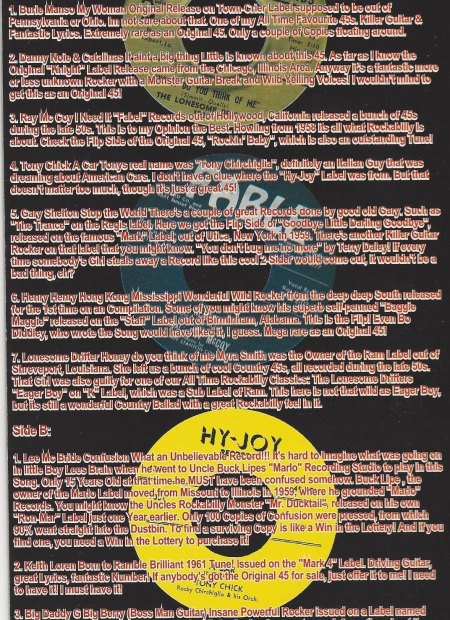 1. Burle Manso My Woman Original Release on Town-Crier Label supposed to be out of
Pennsylvania or Ohio. Im not sure about that. One of my All Time Favourite 45s. Killer Guitar &
Fantastic Lyrics. Extremely rare as an Original 45. Only a couple of Copies floating around.
2. Danny Noie & Catalinas It aint a big thing Little is known about this 45. As far as I know the
Original "Knight" Label Release came from the Chicago, Illinois Area. Anyway it's a fantastic more
or less unknown Rocker with a Monster Guitar Break and Wild Yelling Voices! I wouldn't mind to
get this as an Original 45!
YOU THINK OF ME"
THE LONESOME
3. Ray Mc Coy I Need it "Fabel" Records out of Hollywood, California released a bunch of 45s
during the late 50s. This is to my Opinion the Best. Howling from 1958 its all what Rockabilly is
about. Check the Flip Side of the Original 45, "Rockin' Baby", which is also an outstanding Tune!
4. Tony Chick A Car Tonys real name was "Tony Chirchiglia", definitely an Italian Guy that was
dreaming about American Cars. I don't have a clue where the "Hy-Joy" Label was from. But that
doesn't matter too much, though it's just a great 45!
5. Gary Shelton Stop the World There's a couple of great Records done by good old Gary. Such as
"The Trance" on the Regis label. Here we got the Flip Side of "Goodbye Little Darling Goodbye",
released on the famous "Mark" Label, out of Utica, New York in 1959. There's another Killer Guitar
Rocker on that label that you might know. "You don't bug me no more" by Terry Daly! If every
time somebody's Girl steals away a Record like this cool 2-Sider would come out, it wouldn't be a
bad thing, eh?
6. Henry Henry Hong Kong Mississippi Wonderful Wild Rocker from the deep deep South released
for the 1st time on an Compilation. Some of you might know his superb self-penned "Baggie
Maggie" released on the "Staff" Label out of Birmingham, Alabama. This is the Flip! Even Bo
Diddley, who wrote the Song would have liked it, I guess. Mega rare as an Original 45!
7. Lonesome Drifter Honey do you think of me Myra Smith was the Owner of the Ram Label out of
Shreveport, Louisiana. She left us a bunch of cool Country 45s, all recorded during the late 50s.
That Girl was also guilty for one of our All Time Rockabilly Classics: The Lonesome Drifters
"Eager Boy" on "K" Label, which was a Sub Label of Ram. This here is not that wild as Eager Boy,
but its still a wonderful Country Ballad with a great Rockabilly feel in it.
Side B:
HY-JOY
1. Lee Mc Bride Confusion What an Unbelievable Record!!! It's hard to imagine what was going on
in little Boy Lees Brain when he went to Uncle Buck Lipes "Marlo" Recording Studio to play in this
Song. Only 15 Years Old at that time he MUST have been confused somehow. Buck Lipe, the
owner of the Marlo Label moved from Missouri to Illinois in 1959, where he grounded "Marlo"
Records. You might know the Uncles Rockabilly Monster "Mr. Ducktail", released on his own
"Ron-Mar" Label just one Year earlier. Only 100 Copies of Confusion were pressed, from which
90% went straight into the Dustbin. To find a surviving Copy is like a Win in the Lottery! And If you
find one, you need a Win in the Lottery to purchase it!
2. Keith Loren Born to Ramble Brilliant 1961 Tune! Issued on the "Mark 4" Label. Driving Guitar,
great Lyrics, fantastic Number! If anybody's got the Original 45 for sale, just offer it to me! I need
to have it! I must have it!
TONY CHICK
Rocky Chirchiglia & his Orch.
3. Big Daddy G Big Berry (Boss Man Guitar) Insane Powerful Rocker issued on a Label named